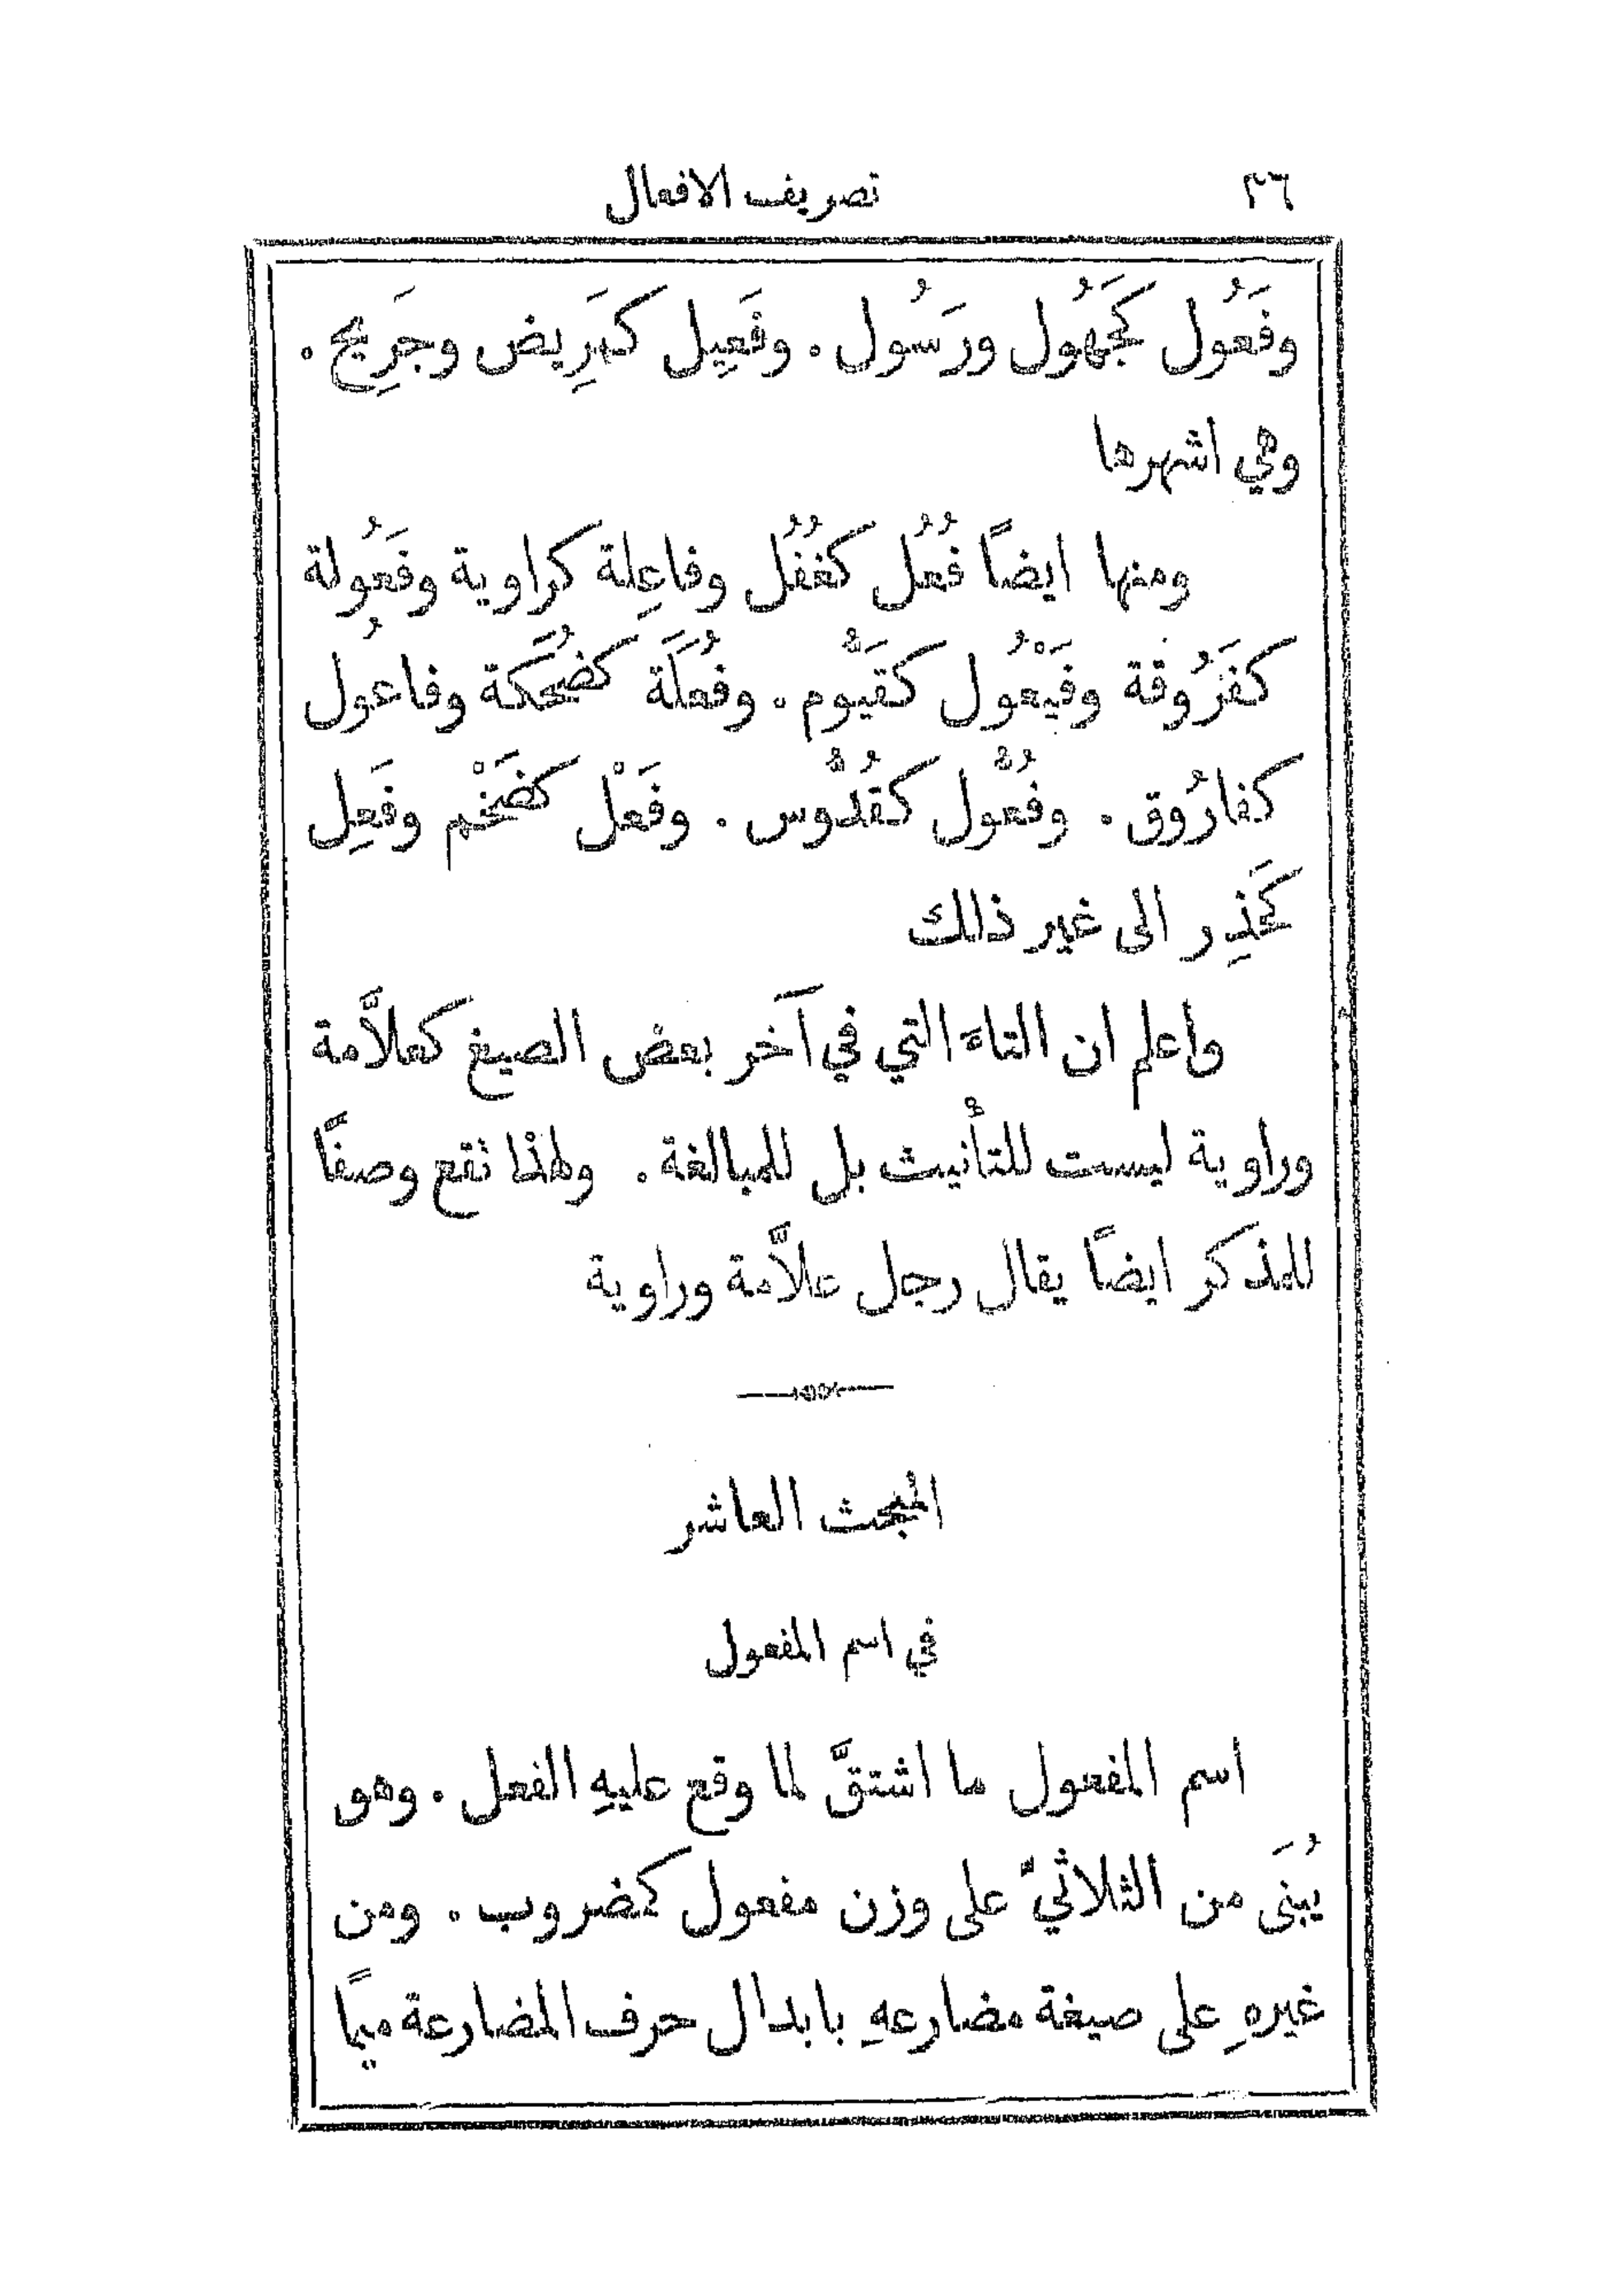 ٣٦ تصريف الافعال
وفَعُول كجَهُول ورَسُول. وفَعِيل كمَرِيض وجَرِيح.
وهي اشهرها
ومنها ايضاً فُعُل كغُفُل وفاعِلة كراوية وفَعُولة
كفَرُوقة وفَيْعُول كقَيُّوم. وفُعَلَة كضُحَكة وفاعُول
كفارُوق. وفُعُّول كقُدُّوس. وفَعْل كضَخْم وفَعِل
كَحذِر الى غير ذلك
واعلم ان التاءَ التي في آخر بعض الصيغ كعلاَّمة
وراوية ليست للتأنيث بل للمبالغة. ولهذا تقع وصفاً
للمذكر ايضاً يقال رجل علاَّمة وراوية
المبحث العاشر
في اسم المفعول
اسم المفعول ما اشتقَّ لما وقع عليهِ الفعل. وهو
يُبنَى من الثلاثيّ على وزن مفعول كمضروب. ومن
غيرهِ على صيغة مضارعهِ بابدال حرف المضارعة ميماً